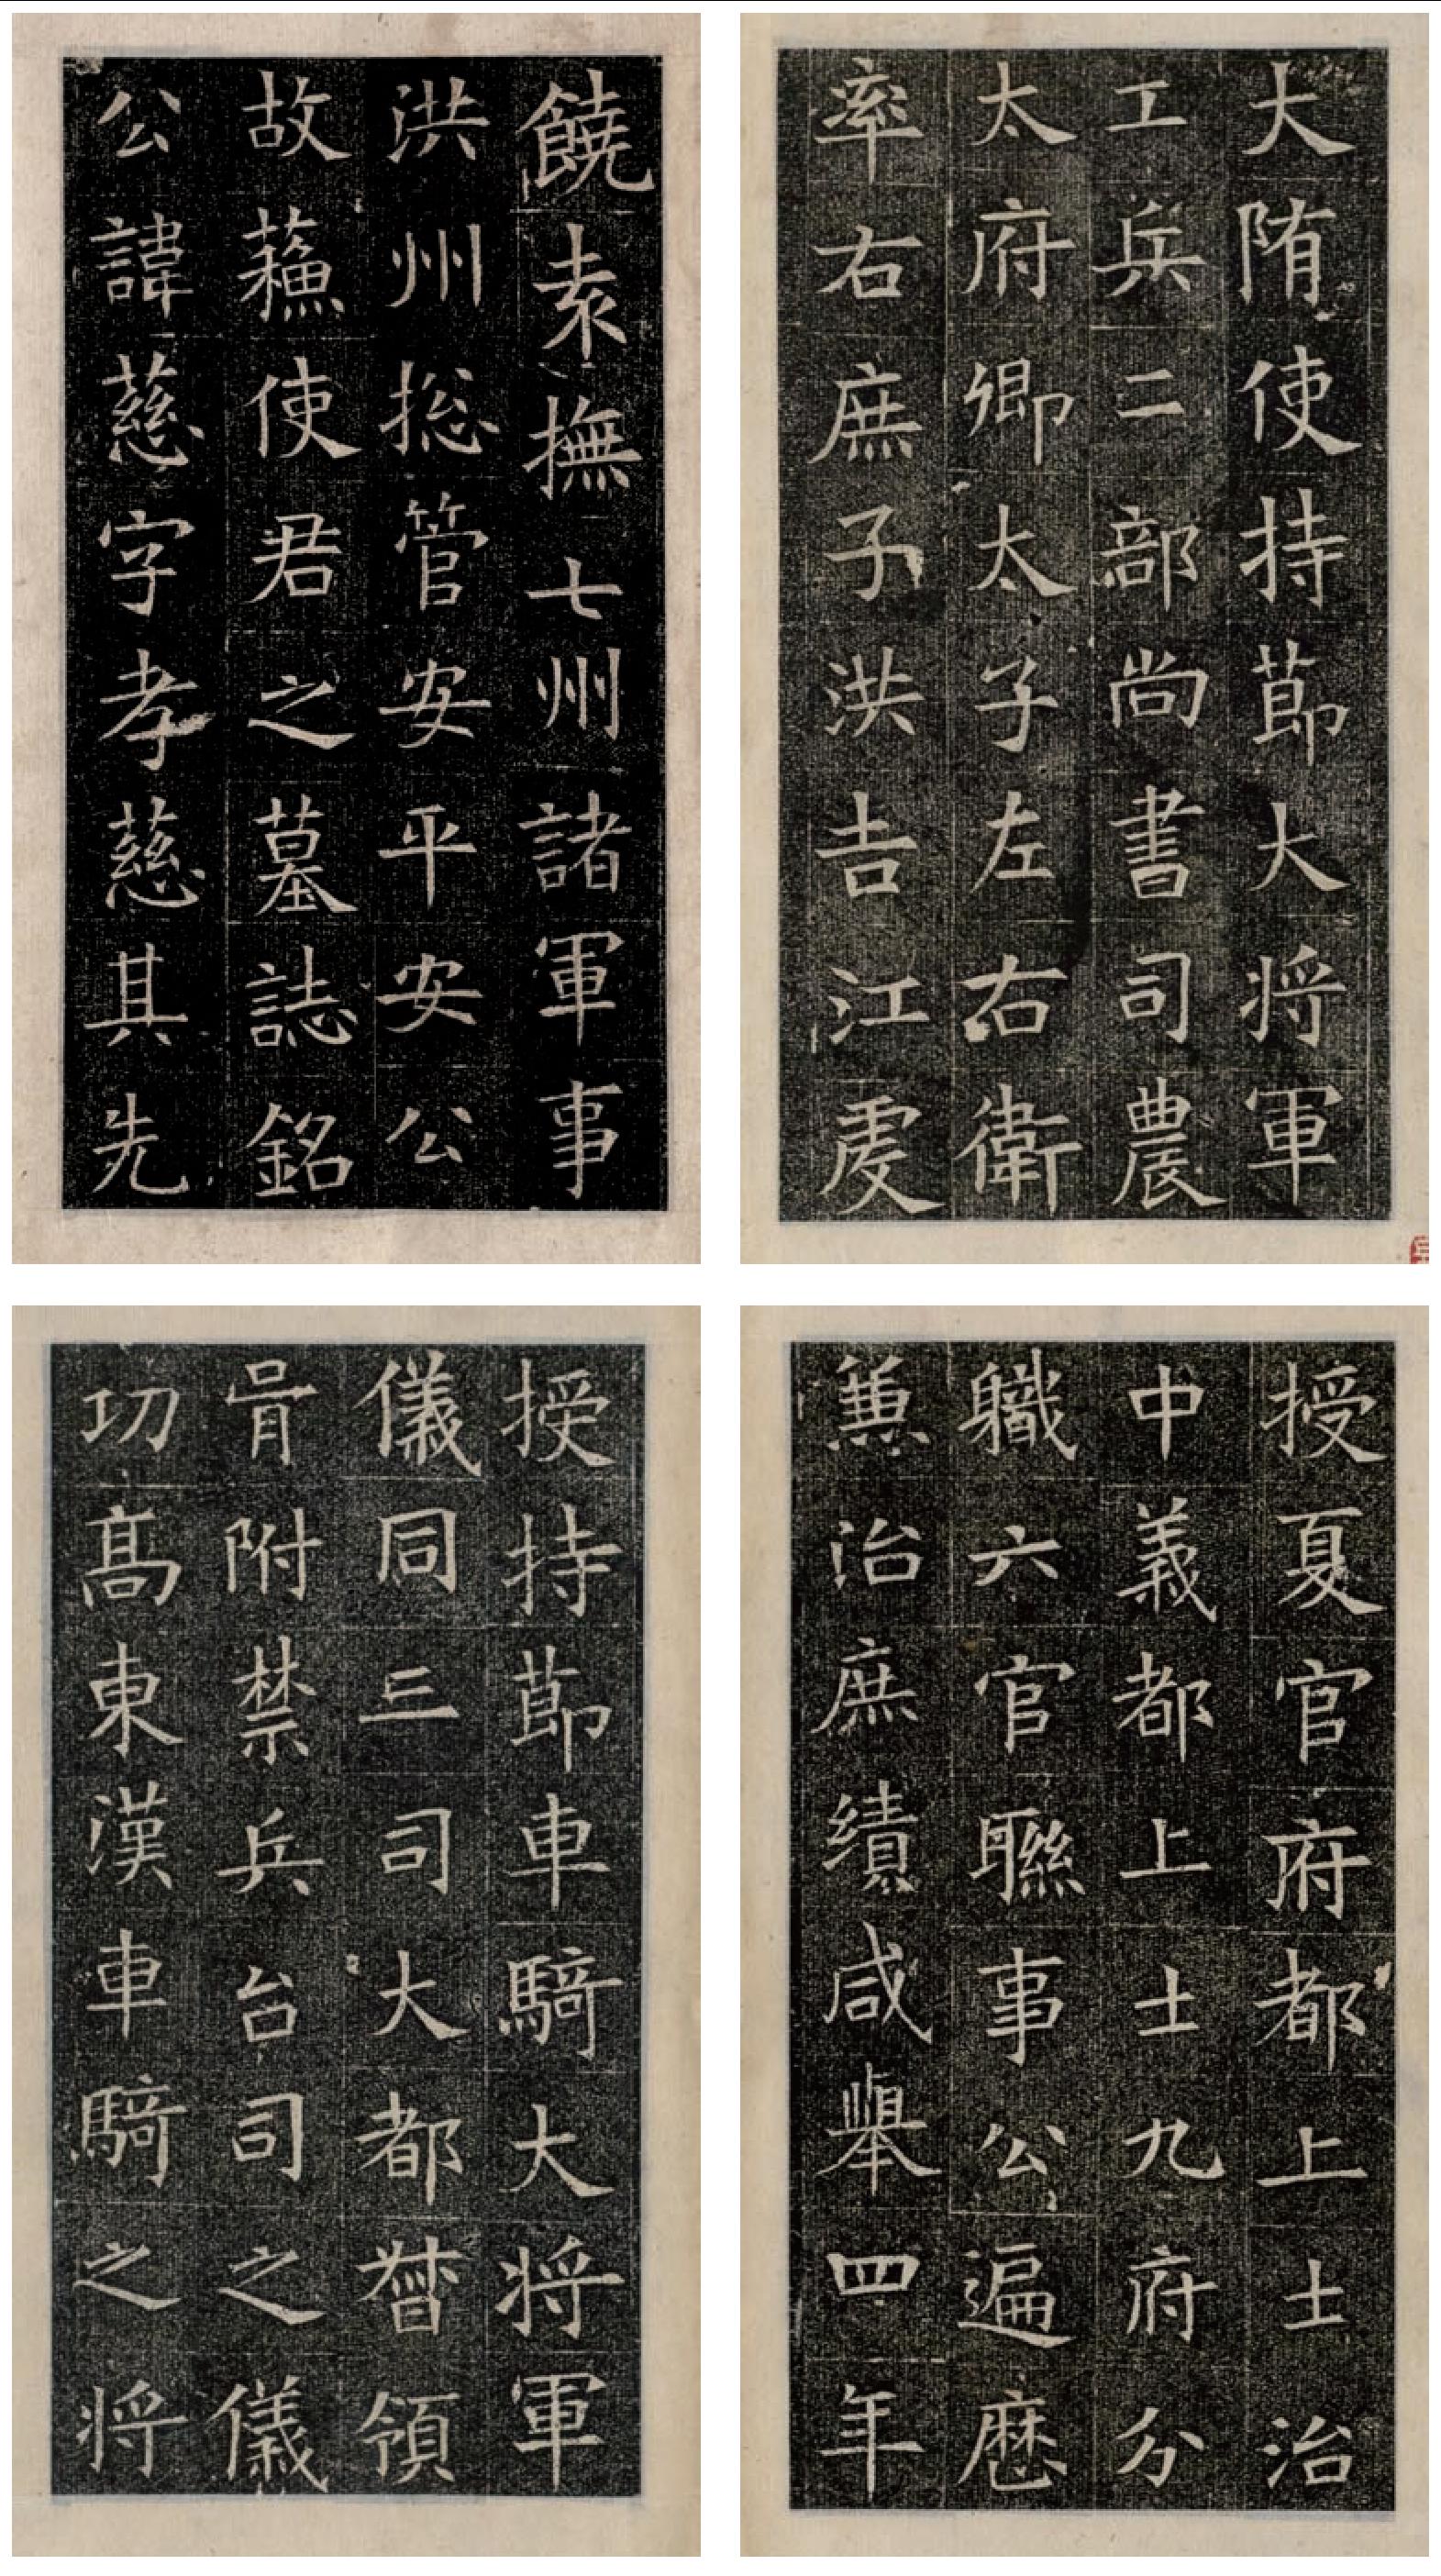 大隋使持莭大将軍
工兵二部尚書司農
太府卿太子左右衛
率右庶子洪吉江虔
饒素撫七州諸軍事
洪州揔管安平安公
故蘓使君之墓誌銘
公諱慈字孝慈其先
授夏官府都上士治
中義都上士九府分
軄六官聮事公遍歷
蕪治庶績咸舉四年
授持莭車騎大将軍
儀同三司大都督領
胥附禁兵台司之儀
功髙東漢車騎之将